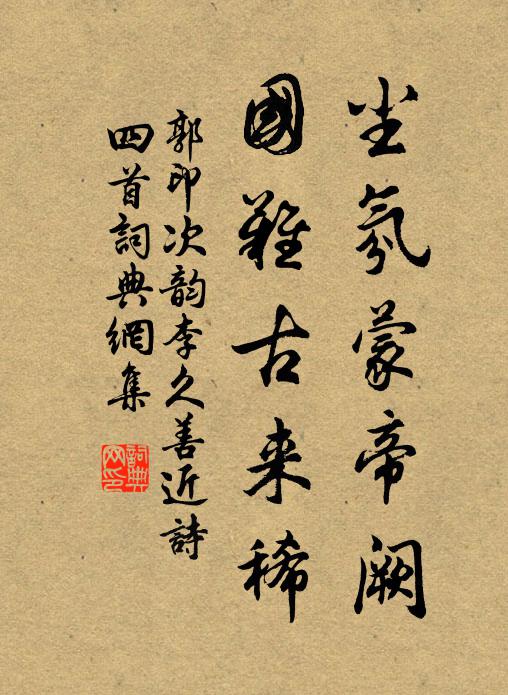 尘氛蒙帝阙
國難古来稀
郭印次韵李久善近詩
四首詞典網集
詞典网印